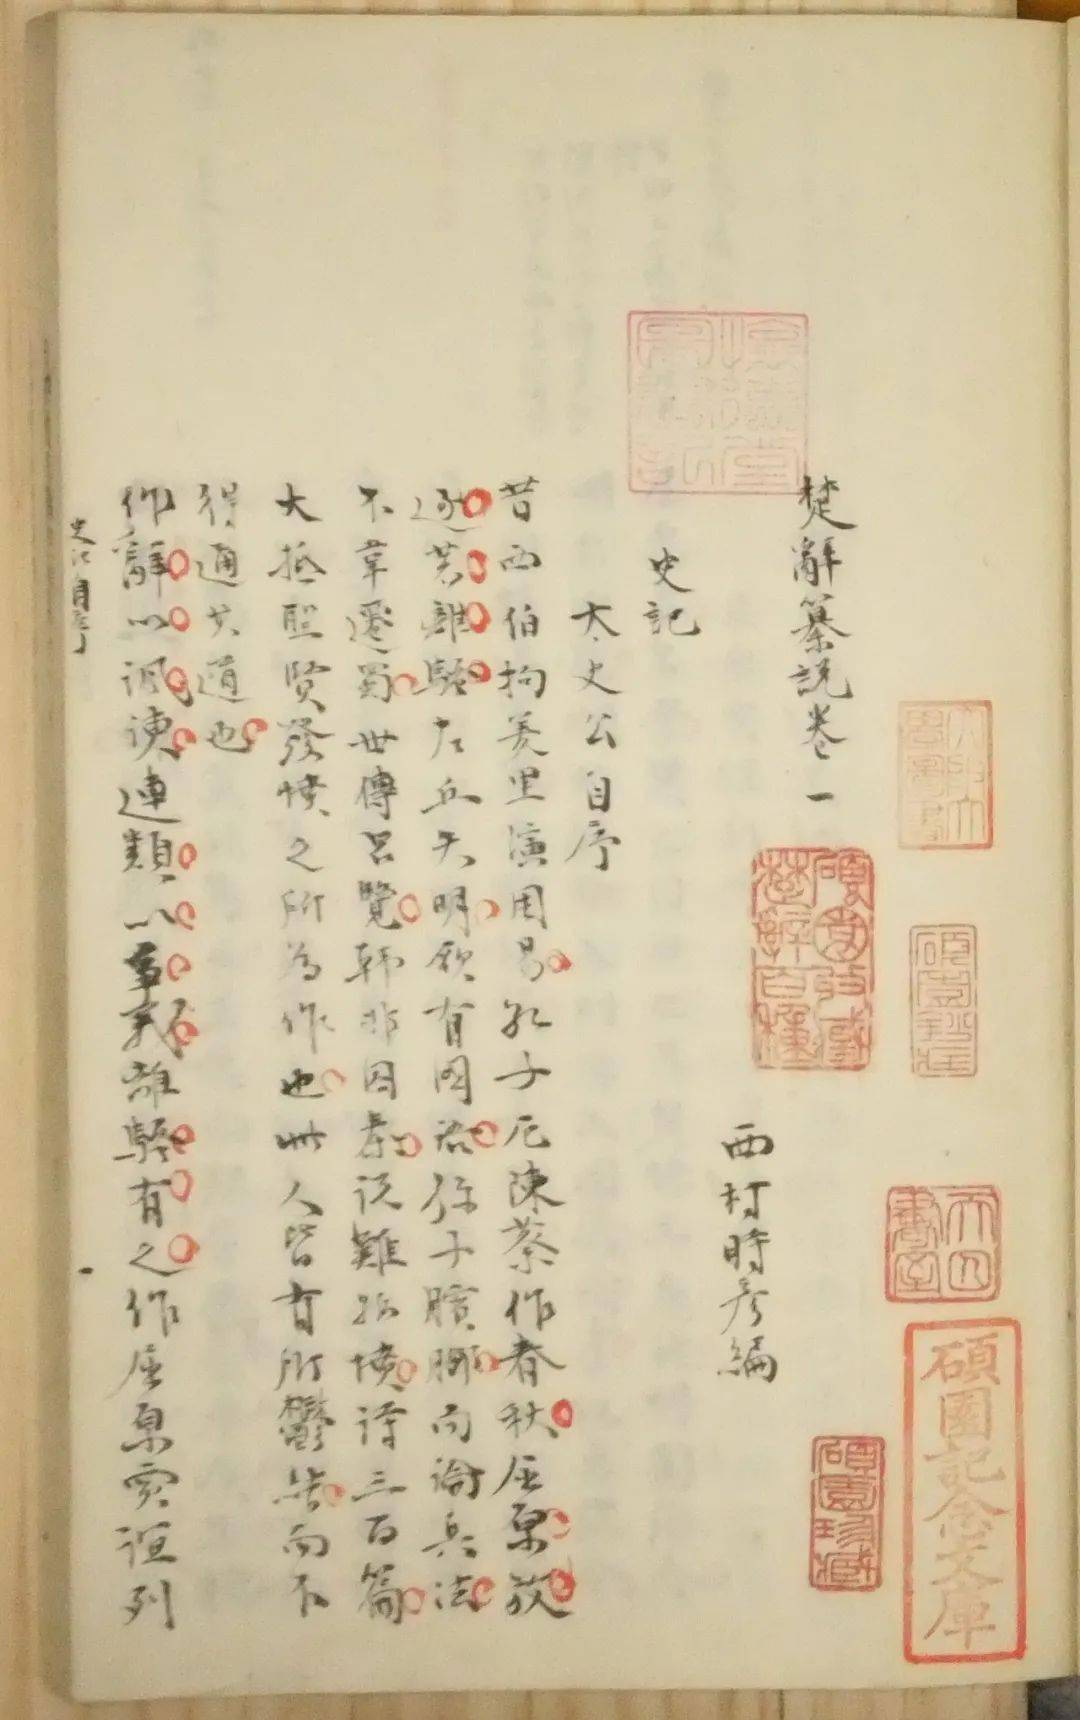 碩園記念文庫
天囚書室
碩園珍藏
碩園收臧楚辭百種
懷德堂圖書記
楚辭纂說卷一
西村時彥編
史記
太史公自序
昔西伯拘羑里演周易孔子厄陳蔡作春秋屈原放
逐著離騷左丘失明厥有國語孫子臏脚而論兵法
不韋遷蜀世傳呂覽韓非囚秦說難孤憤詩三百篇
大抵聖賢發憤之所為作也此人皆有所鬱結而不
得通其道也
作辭以諷諫連類以爭義離騷有之作屈原賈誼列
史記自序